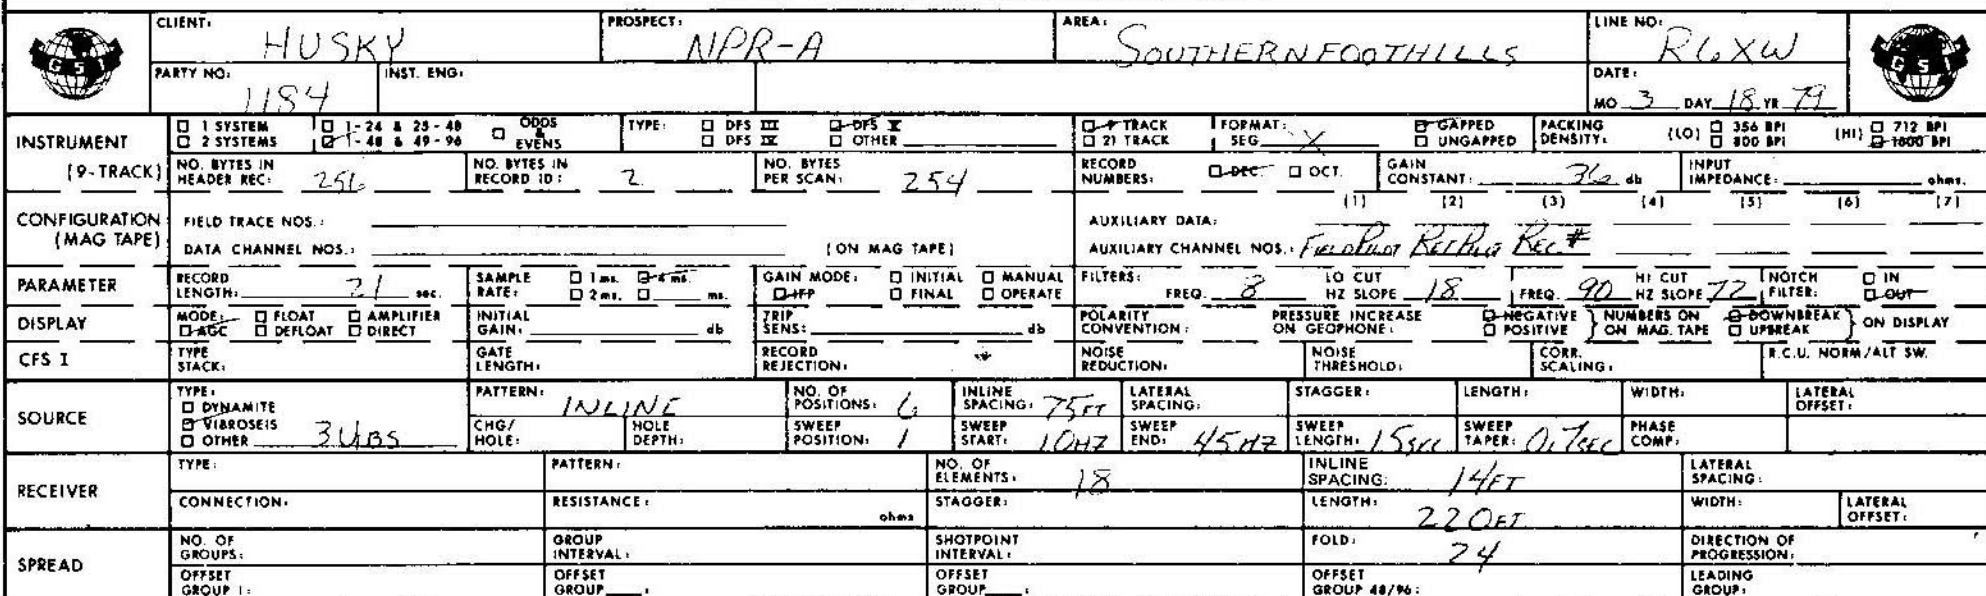 CLIENT: HUSKY PROSPECT: NPR-A AREA: SOUTHERN FOOTHILLS LINE NO: R6XW
GSI GSI
PARTY NO: 1184 INST. ENG: DATE: MO 3 DAY 18 YR 79
INSTRUMENT (9-TRACK)
□ 1 SYSTEM □ 1-24 & 25-48 □ ODDS & EVENS TYPE: □ DFS III □ DFS V □ 9 TRACK FORMAT: □ GAPPED PACKING DENSITY: (LO) □ 356 BPI (HI) □ 712 BPI
□ 2 SYSTEMS □ 1-48 & 49-96 □ DFS IV □ OTHER □ 21 TRACK SEG X □ UNGAPPED □ 800 BPI □ 1600 BPI
NO. BYTES IN HEADER REC: 256 NO. BYTES IN RECORD ID: 2 NO. BYTES PER SCAN: 254 RECORD NUMBERS: □ DEC. □ OCT. GAIN CONSTANT: 36 db INPUT IMPEDANCE: ohms.
CONFIGURATION (MAG TAPE)
FIELD TRACE NOS.: AUXILIARY DATA: (1) (2) (3) (4) (5) (6) (7)
DATA CHANNEL NOS.: (ON MAG TAPE) AUXILIARY CHANNEL NOS.: FIELD PILOT REC #
PARAMETER RECORD LENGTH: 21 sec. SAMPLE RATE: □ 1 ms. □ 4 ms. □ 2 ms. □ ms. GAIN MODE: □ INITIAL □ MANUAL □ IFP □ FINAL □ OPERATE FILTERS: FREQ. 8 LO CUT HZ SLOPE 18 FREQ. 90 HI CUT HZ SLOPE 72 NOTCH FILTER: □ IN □ OUT
DISPLAY MODE: □ FLOAT □ AMPLIFIER □ AGC □ DEFLOAT □ DIRECT INITIAL GAIN: db TRIP SENS: db POLARITY CONVENTION: PRESSURE INCREASE ON GEOPHONE: □ NEGATIVE □ POSITIVE } NUMBERS ON MAG. TAPE □ DOWNBREAK □ UPBREAK } ON DISPLAY
CFS I TYPE STACK: GATE LENGTH: RECORD REJECTION: NOISE REDUCTION: NOISE THRESHOLD: CORR. SCALING: R.C.U. NORM/ALT SW.
SOURCE
TYPE: □ DYNAMITE □ VIBROSEIS □ OTHER 3 VIBS PATTERN: INLINE NO. OF POSITIONS: 6 INLINE SPACING: 75 FT LATERAL SPACING: STAGGER: LENGTH: WIDTH: LATERAL OFFSET:
CHG/HOLE: HOLE DEPTH: SWEEP POSITION: 1 SWEEP START: 10HZ SWEEP END: 45HZ SWEEP LENGTH: 15SEC SWEEP TAPER: 0.7SEC PHASE COMP:
RECEIVER
TYPE: PATTERN: NO. OF ELEMENTS: 18 INLINE SPACING: 14FT LATERAL SPACING:
CONNECTION: RESISTANCE: ohms STAGGER: LENGTH: 220FT WIDTH: LATERAL OFFSET:
SPREAD
NO. OF GROUPS: GROUP INTERVAL: SHOTPOINT INTERVAL: FOLD: 24 DIRECTION OF PROGRESSION:
OFFSET GROUP 1: OFFSET GROUP : OFFSET GROUP : OFFSET GROUP 48/96: LEADING GROUP: